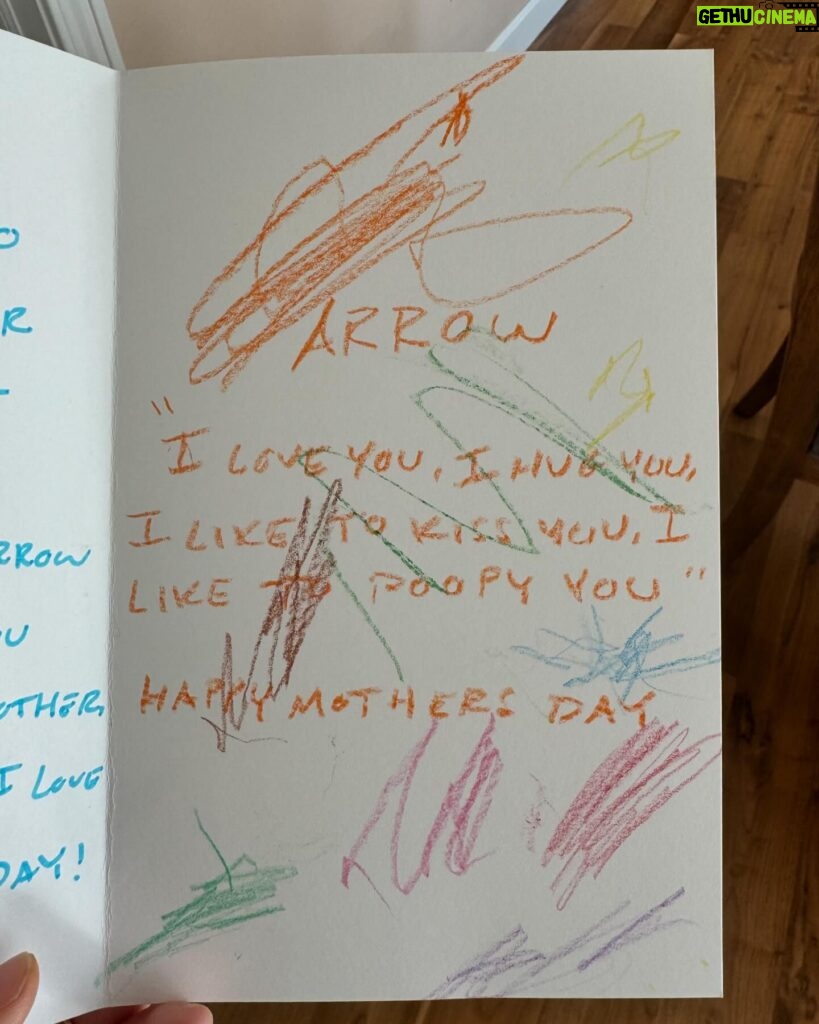 GETHUCINEMA
O
R
ARROW
"I LOVE YOU, I HUG YOU,
I LIKE TO KISS YOU, I
LIKE TO POOPY YOU"
HAPPY MOTHERS DAY
RROW
U
OTHER
I LOVE
DAY!